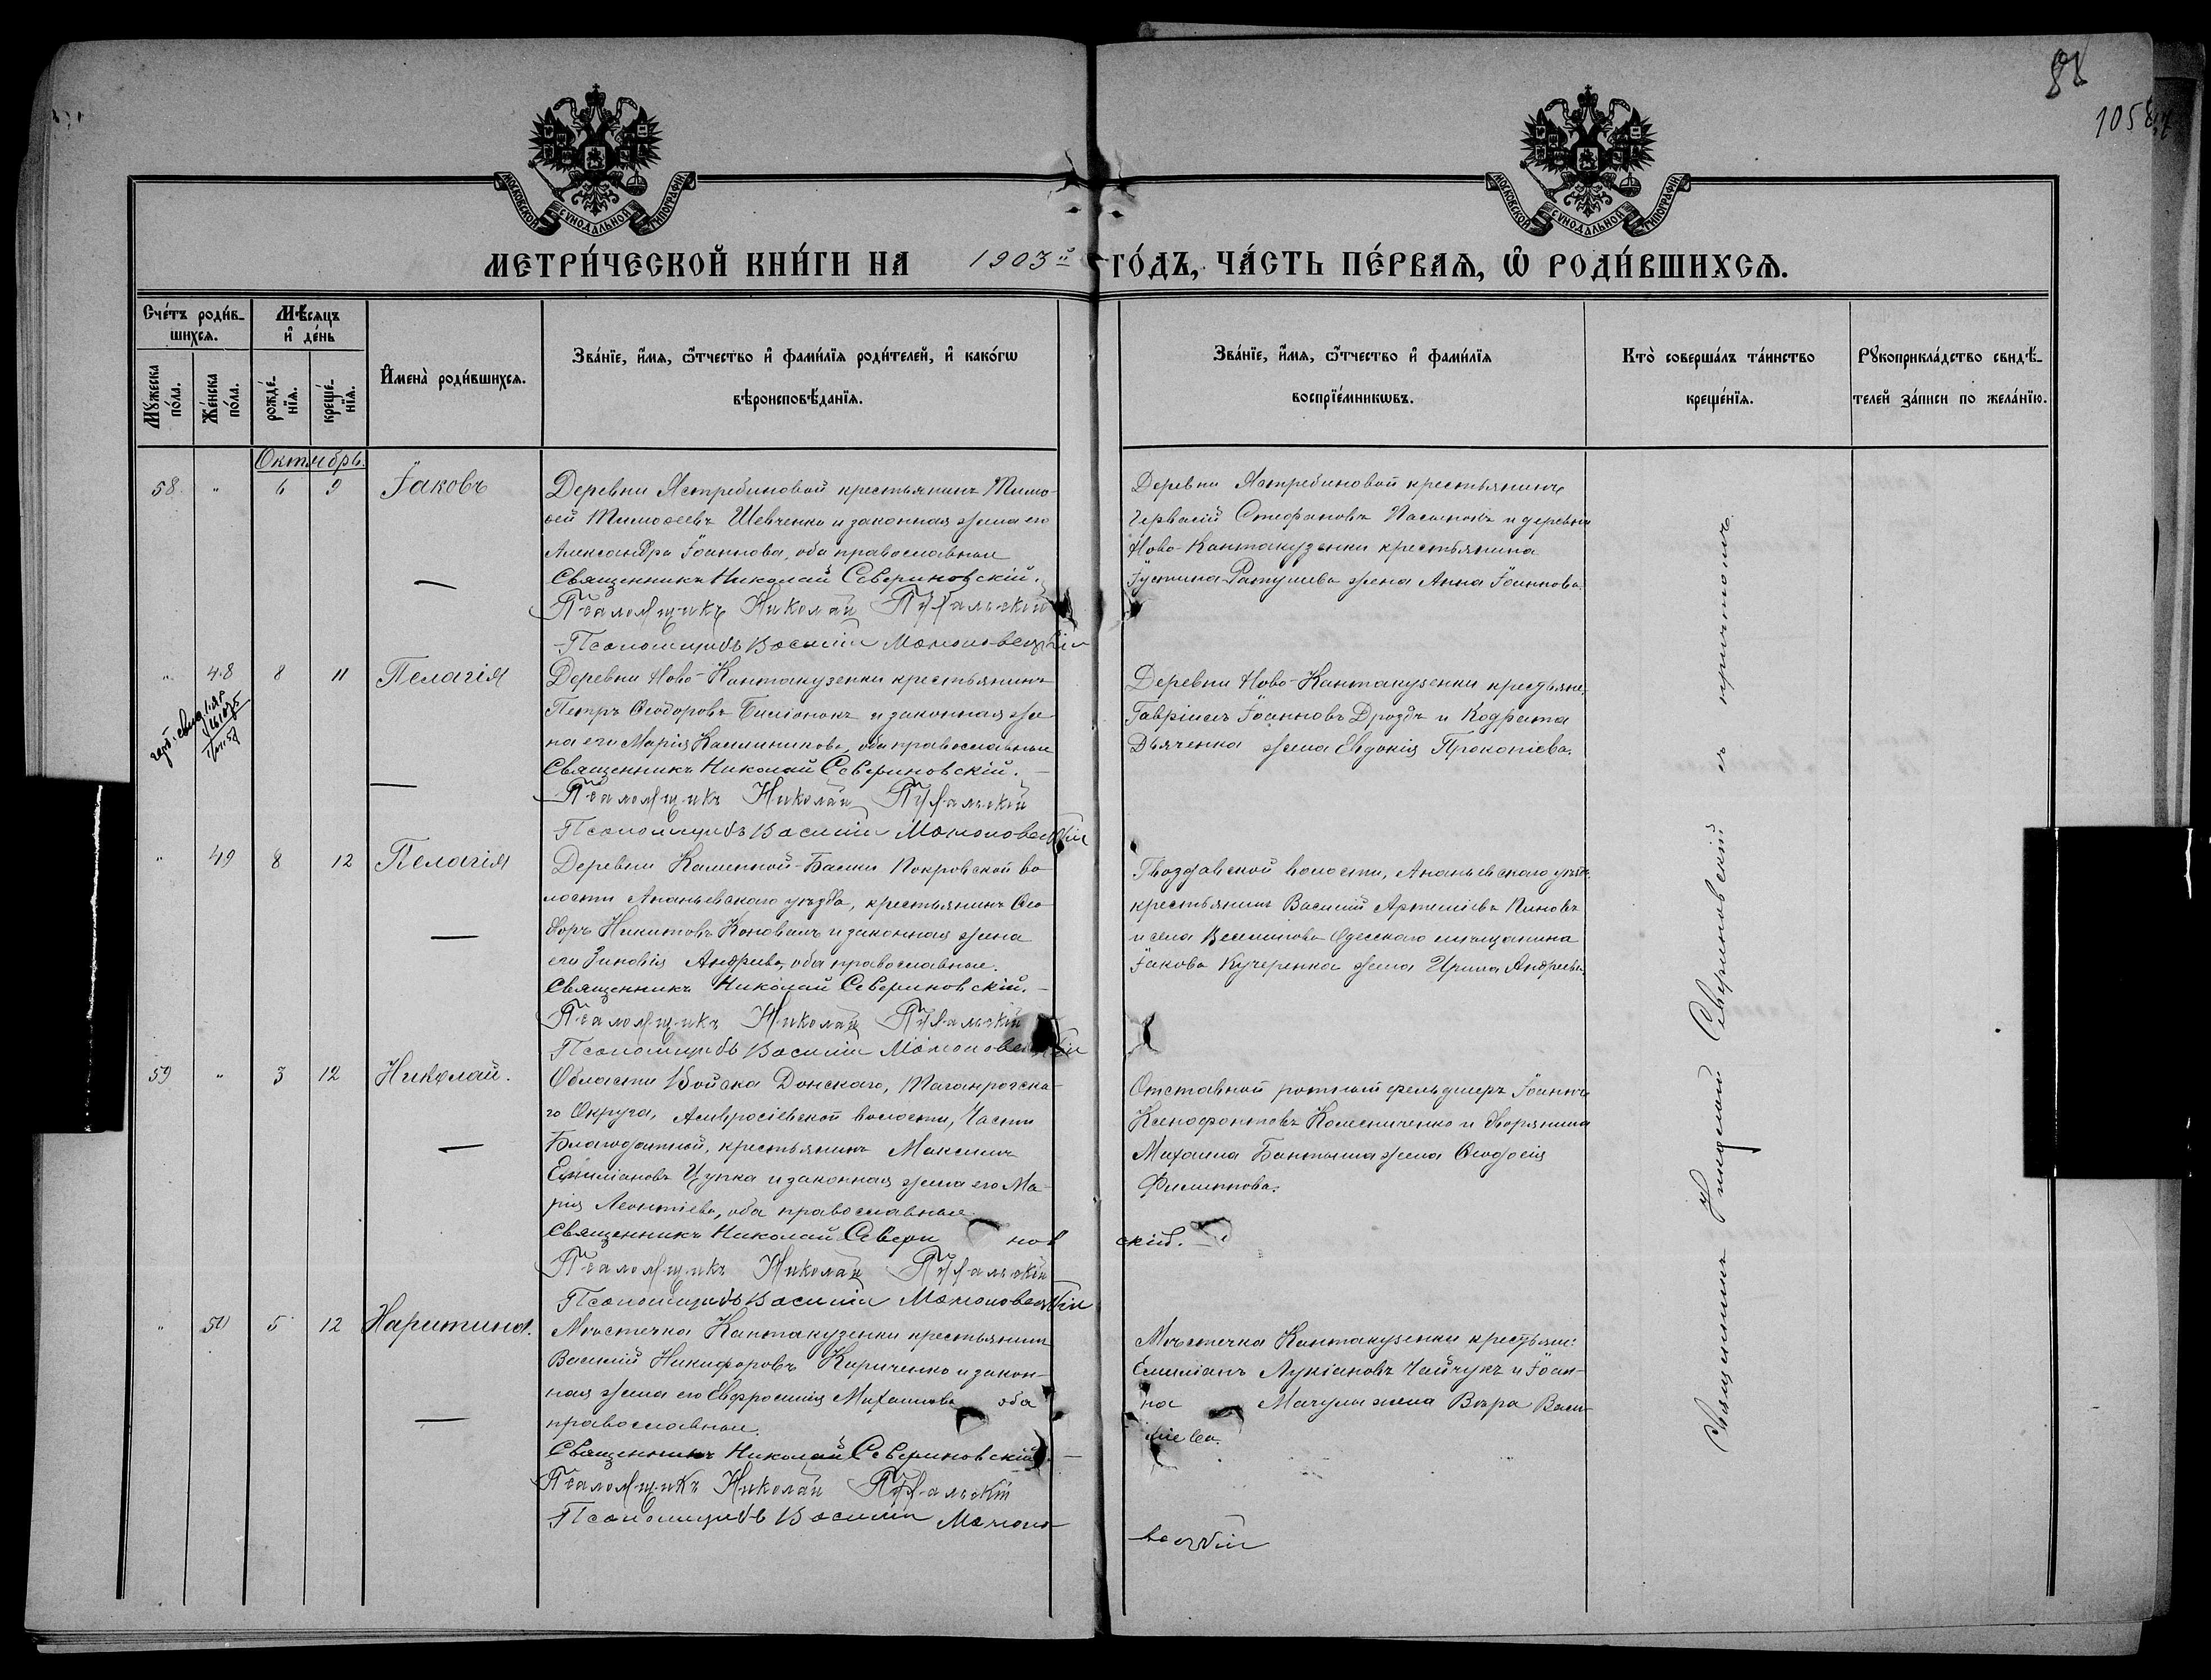 88
1058
МОСКОВСКОЙ СѴНОДАЛЬНОЙ ТИПОГРАФІИ
МОСКОВСКОЙ СѴНОДАЛЬНОЙ ТИПОГРАФІИ
МЕТРИ́ЧЕСКОЙ КНИ́ГИ НА 1903й ГО́ДЪ, ЧА́СТЬ ПЕ́РВАѦ, Ѡ РОДИ́ВШИХСѦ.
Сче́тъ роди́в-
шихсѧ.
Мѣ́сѧцъ
и҆ де́нь
Мꙋжеска по́ла.
Же́нска по́ла.
рожде́-
нїѧ.
креще́-
нїѧ.
И҆мена̀ роди́вшихсѧ.
Зва́нїе, и҆́мѧ, ѻ҆́тчество и҆ фами́лїѧ роди́телей, и҆ како́гѡ
вѣроисповѣ́данїѧ.
Зва́нїе, и҆́мѧ, ѻ҆́тчество и҆ фами́лїѧ
воспрїе́мникѡвъ.
Кто̀ соверша́лъ та́инство
креще́нїѧ.
Рꙋкоприкла́дство свидѣ́-
телей за́писи по жела́нїю.
Октябрь.
58 " 6 9 Іаковъ
Деревни Ястребиновой крестьянинъ Тимо-
ѳей Тимоѳеевъ Шевченко и законная жена его
Александра Іоаннова, оба православные
Священникъ Николай Севериновскій.
Псаломщикъ Николай
Псаломщикъ Василій
Деревни Ястребиновой крестьянинъ
Гервасій Стефановъ и деревни
Ново-Кантакузенки крестьянина
Іустина жена Анна Іоаннова.
" 48 8 11 Пелагія
Деревни Ново-Кантакузенки крестьянинъ
Петръ Ѳеодоровъ и законная же-
на его Марія Каллиникова, оба православные
Священникъ Николай Севериновскій.
Псаломщикъ Николай
Псаломщикъ Василій
Деревни Ново-Кантакузенки крестьяне:
Гавріилъ Іоанновъ Дроздъ и Кодрата
Дьяченка жена Евдокія Прокопіева.
" 49 8 12 Пелагія
Деревни Каменной-Балки Покровской во-
лости Ананьевскаго уѣзда, крестьянинъ Ѳео-
доръ Никитовъ Коновалъ и законная жена
его Зиновія Андреева, оба православные.
Священникъ Николай Севериновскій.
Псаломщикъ Николай
Псаломщикъ Василій
Гвоздавской волости, Ананьевскаго уѣзда
крестьянинъ Василій Артеміевъ
и села Одесскаго мѣщанина
Іакова Кучеренка жена Ирина Андреева.
59 " 3 12 Николай.
Области Войска Донскаго, Таганрогска-
го Округа, Амвросіевской волости, Части
Благодатной, крестьянинъ Максимъ
Емиліановъ Цупка и законная жена его Ма-
рія Леонтіева, оба православные
Священникъ Николай Северинов скій.
Псаломщикъ Николай
Псаломщикъ Василій
Отставной ротный фельдшеръ Іоаннъ
Ксенофонтовъ Колесниченко и дворянина
Михаила жена Ѳеодосія
Филиппова.
" 50 5 12 Харитина.
Мѣстечка Кантакузенки крестьянинъ
Василій Никифоровъ Кириченко и закон-
ная жена его Евфросинія Михаилова оба
православные.
Священникъ Николай Севериновскій.
Псаломщикъ Николай
Псаломщикъ Василій
Мѣстечка Кантакузенки крестьян:
Емиліанъ Лукіановъ Чайчукъ и Іоан-
на Мачула жена Вѣра Васи-
ліева.
Священникъ Николай Севериновскій съ причтомъ.